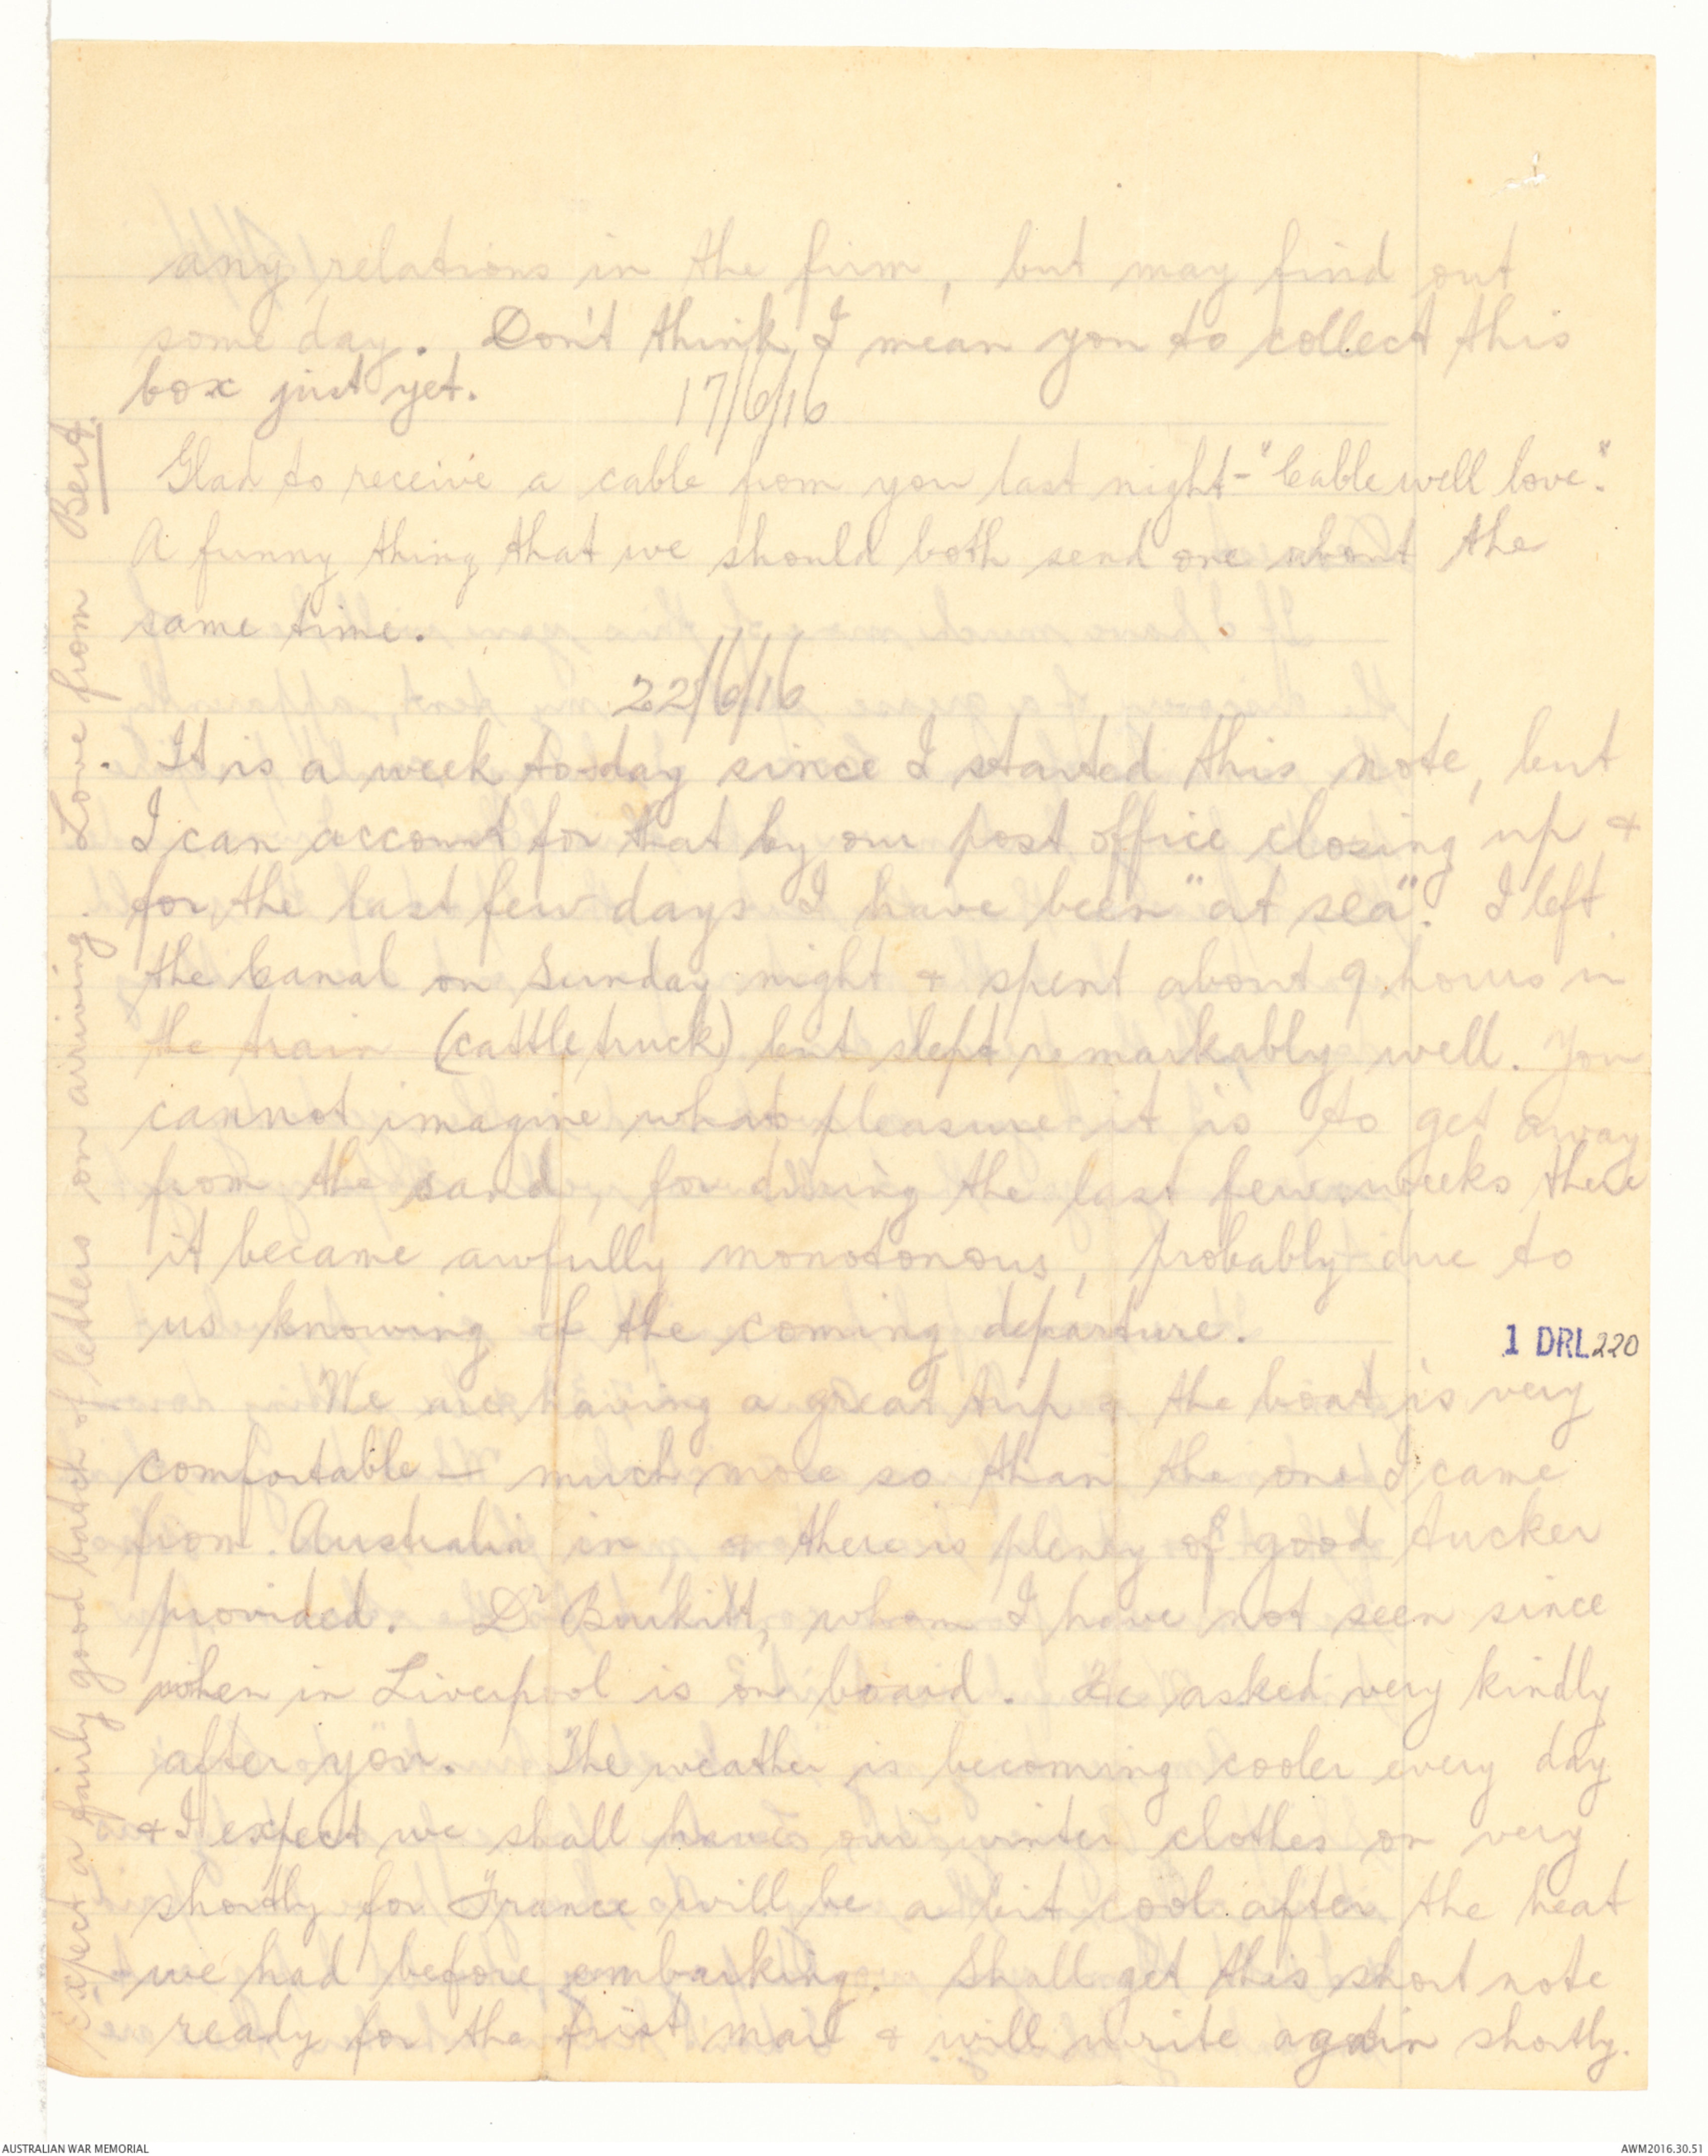 any relations in the firm, but may find out
some day. Don't think I mean you to collect this
box just yet.
17/6/16
Glad to receive a cable from you last night - "Cable well love".
A funny thing that we should both send one about the
same time.
22/6/16
It is a week to-day since I started this note, but
I can account for that by our post office closing up &
for the last few days I have been "at sea". I left
the Canal on Sunday night & spent about 9 hours in
the train (cattle truck) but slept remarkably well. You
cannot imagine what pleasure it is to get away
from the sand, for during the last few weeks there
it became awfully monotonous, probably due to
us knowing of the coming departure.
1 DRL 220
We are having a great trip & the boat is very
comfortable - much more so than the one I came
from Australia in, & there is plenty of good tucker
provided. Dr Burkitt, whom I have not seen since
when in Liverpool is on board. He asked very kindly
after you. The weather is becoming cooler every day
& I expect we shall have our winter clothes on very
shortly for France will be a bit cool after the heat
we had before embarking. Shall get this short note
ready for the first mail & will write again shortly.
Expect a fairly good batch of letters on arriving. Love from Bert.
AUSTRALIAN WAR MEMORIAL
AWM2016.30.51